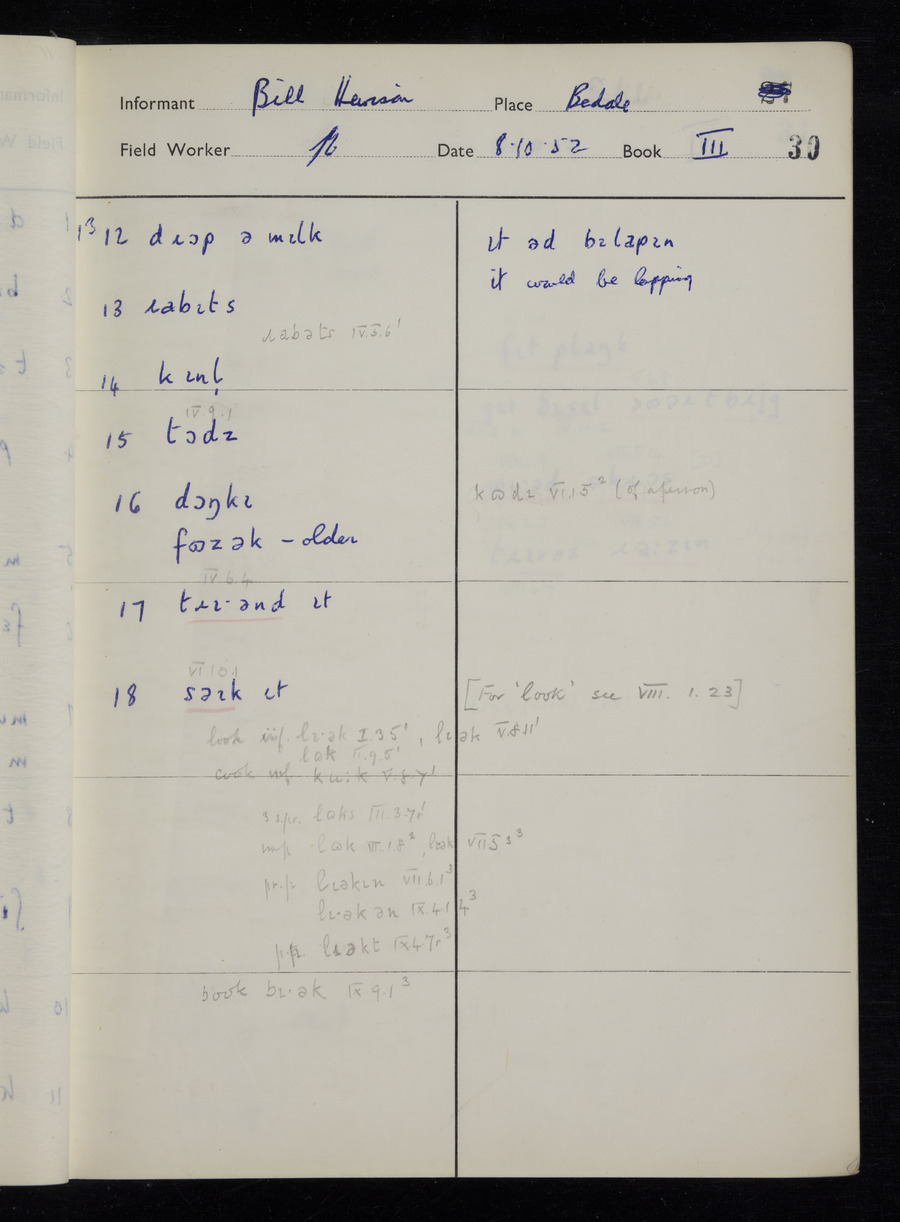 Informant Bill Place Bedale
Field Worker Date 8·10·52 Book III 30
13 12 dɹɔp ə mɪlk
ɪt əd bɪlapɪn
it would be lapping
13 ɹabɪts
ɹabəts IV.5.6'
14 kɪnl̩
IV.9.1
15 tɔdɪ
16 dɔŋkɪ
kɷdɪ VI.1.5² (of a person)
fɷzək – older
IV 6.4
17 tɛɪ·ənd ɪt
VI 10.1
18 səɪk ɪt
[For 'look' see VIII. 1. 23]
look inf. lɪ·ək I.3.5', lɪək V.8.11'
lɷk II.9.5'
cook inf. ku:k V.8.7'
3 s.pr. lɷks III.3.7r'
imp. lɷk III.1.8², lɪək VII 5 3³
pr.p. lɪəkɪn VII.6.1³
lɪ·əkən IX.4.1 4³
pp. lɪəkt IX 4 7r³
book bɪ·ək IX.9.1³